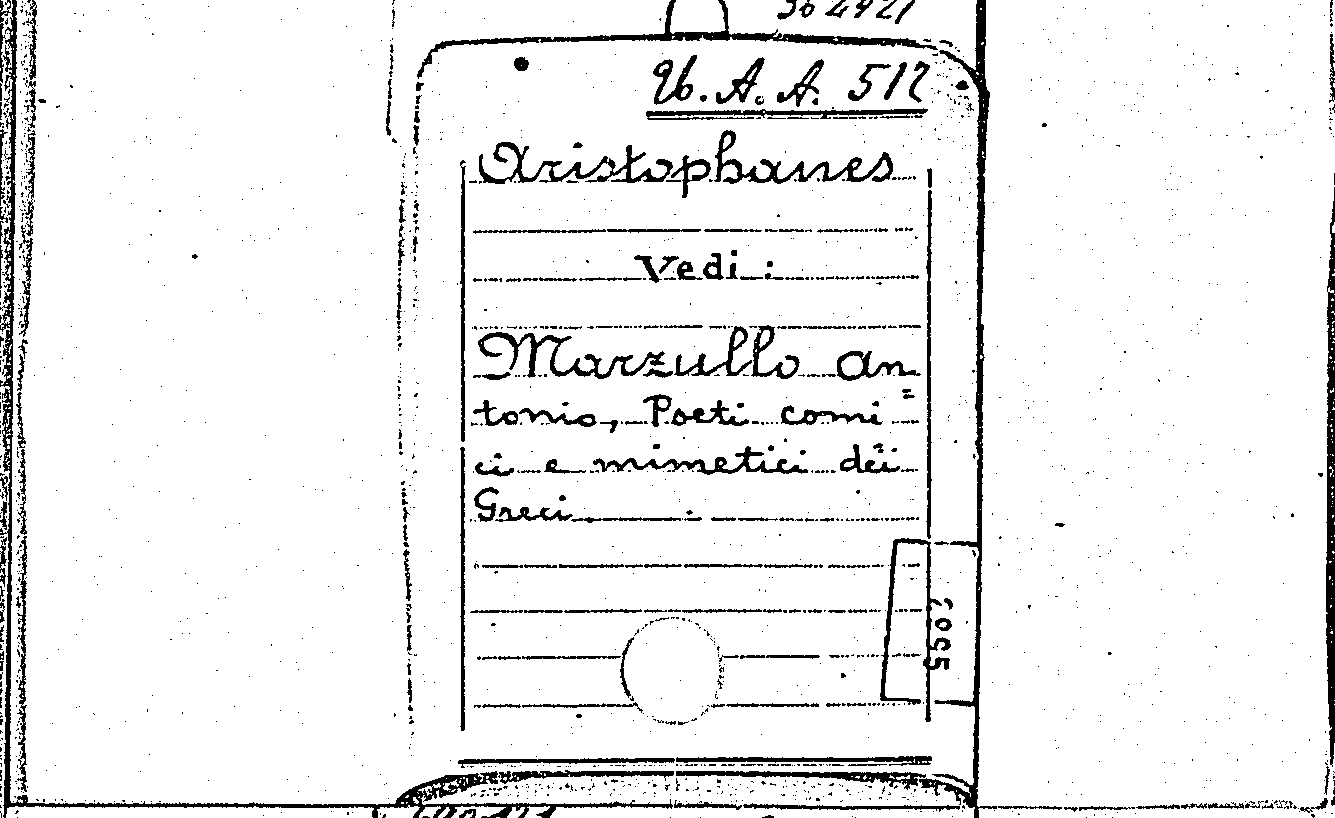 U. A. A. 512
Aristophanes
Vedi :
Marzullo An
tonio, Poeti comi=
ci e mimetici dei
Greci
5095